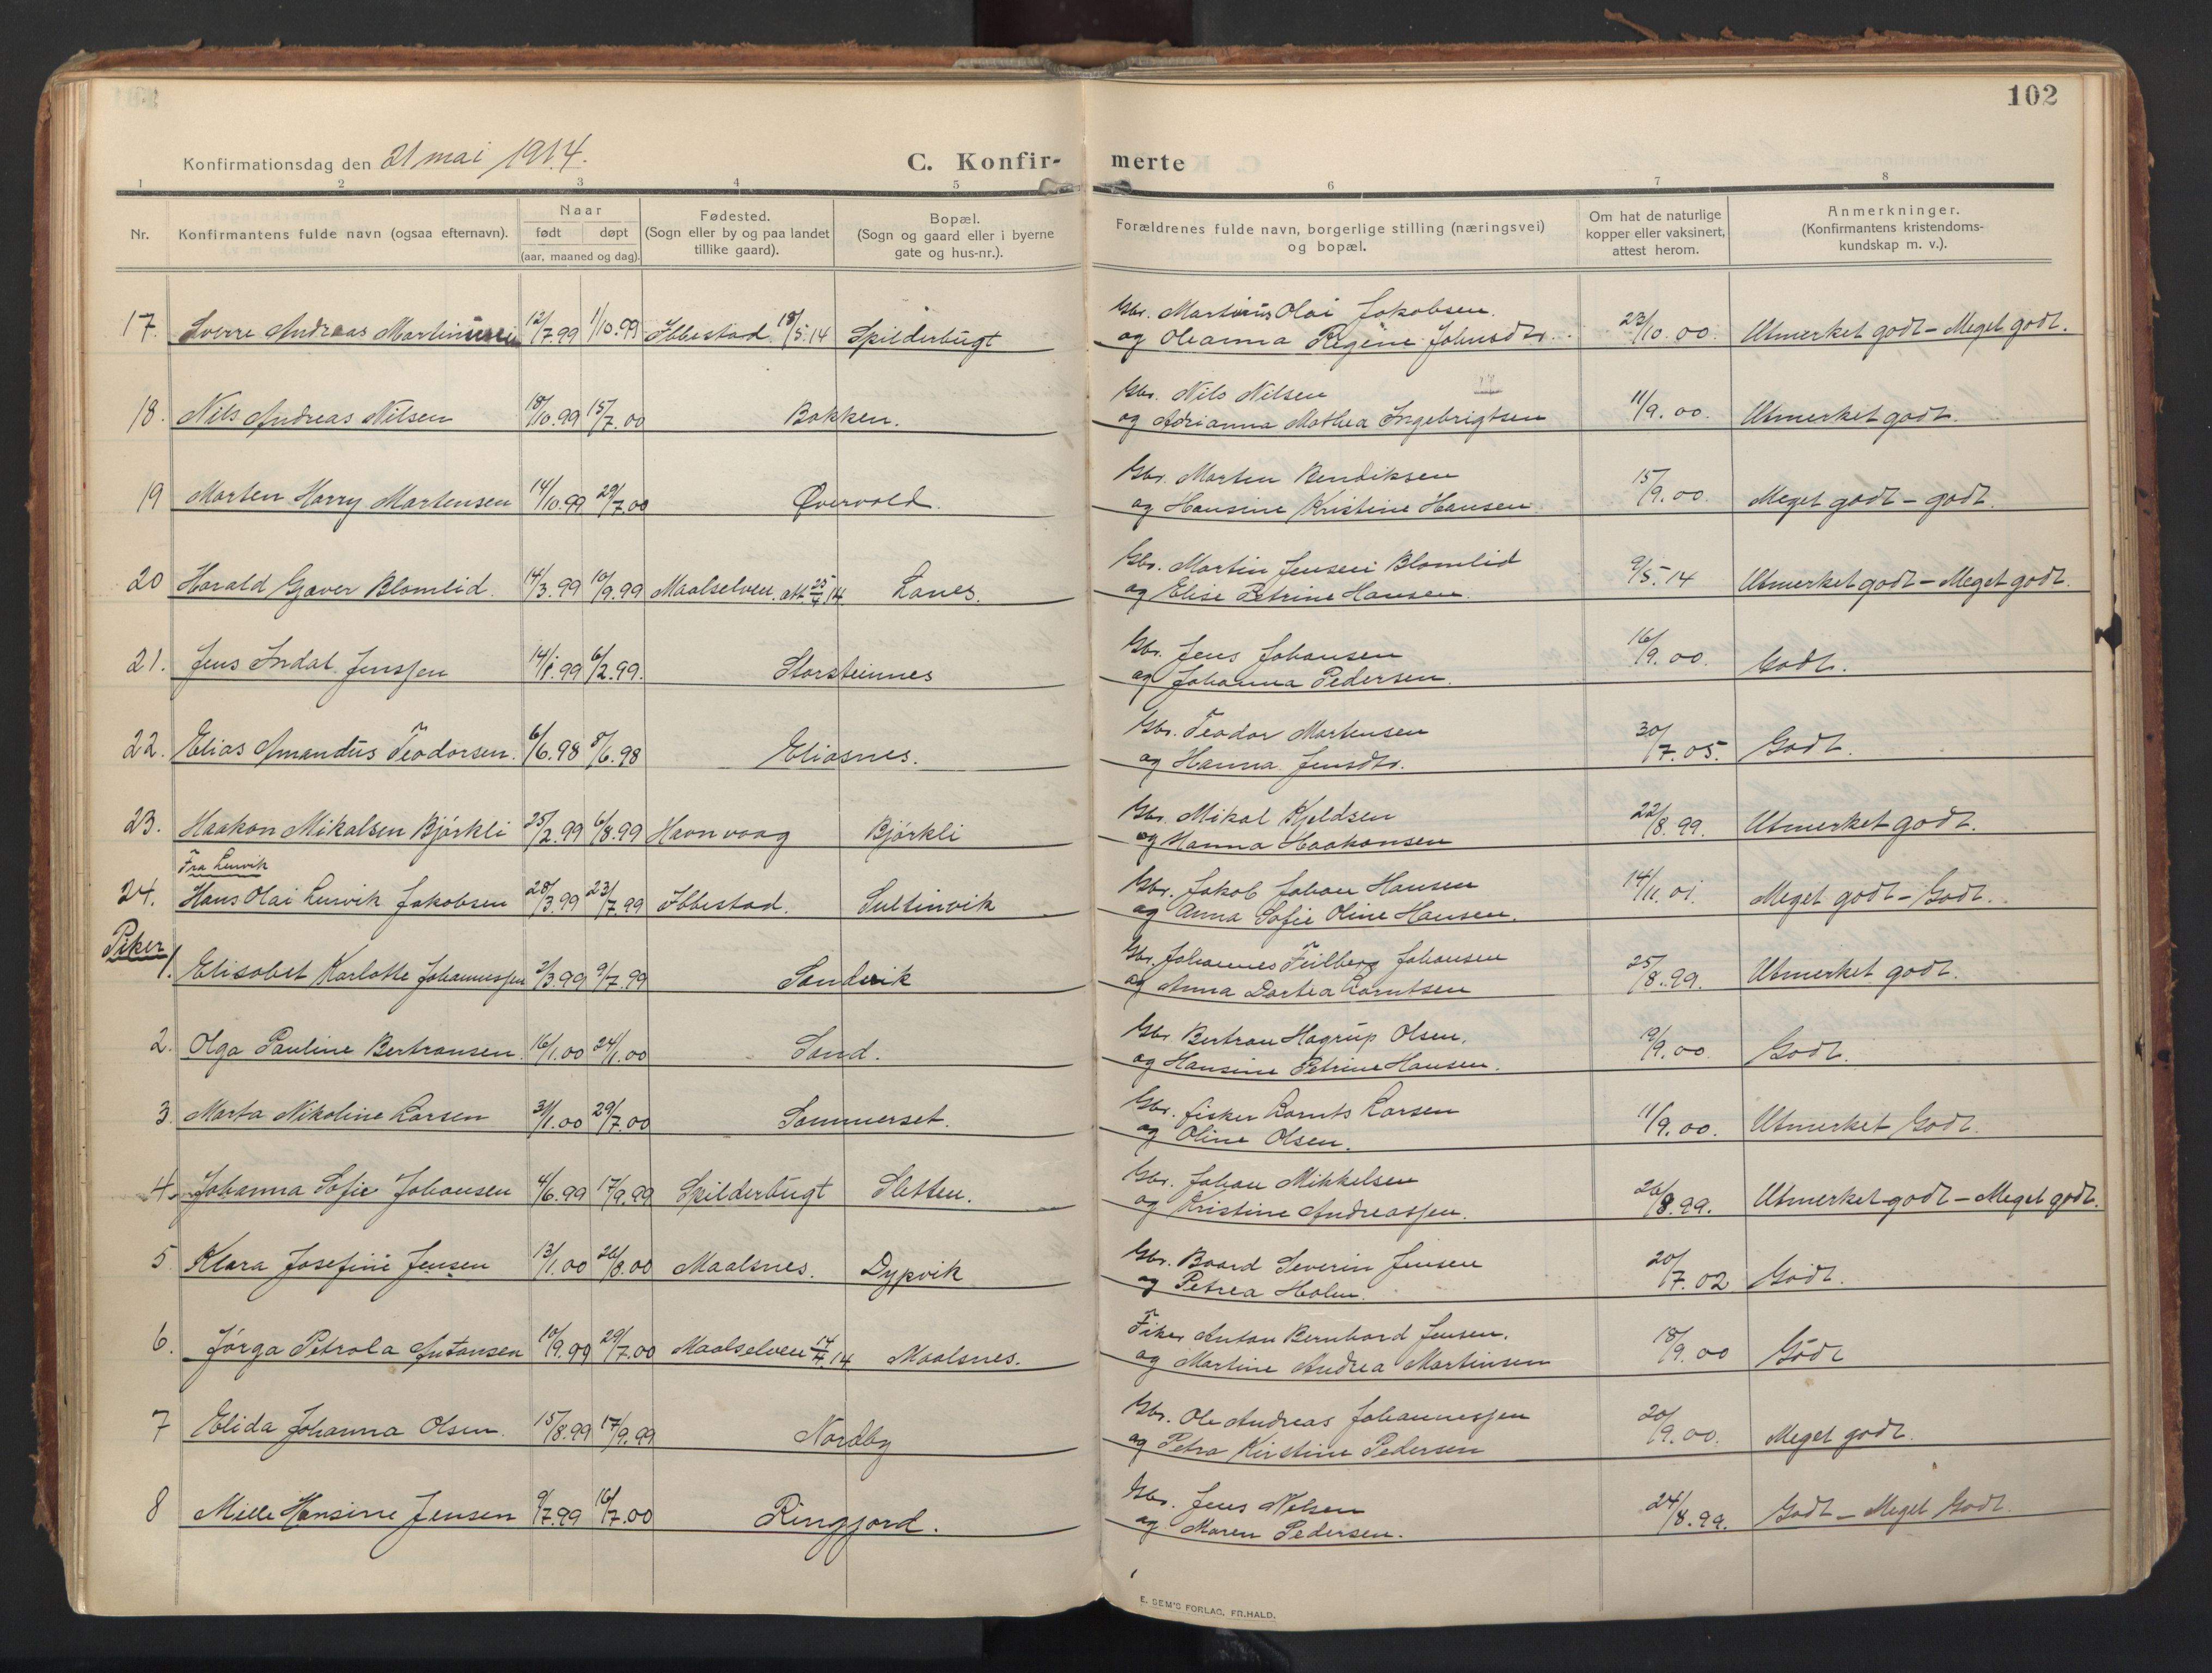 102
Konfirmationsdag den 21 mai 1914.
C. Konfir- merte
1 2 3 4 5 6 7 8
Nr.
Konfirmantens fulde navn (ogsaa efternavn).
Naar
født døpt
(aar, maaned og dag).
Fødested.
(Sogn eller by og paa landet
tillike gaard).
Bopæl.
(Sogn og gaard eller i byerne
gate og hus-nr.).
Forældrenes fulde navn, borgerlige stilling (næringsvei)
og bopæl.
Om hat de naturlige
kopper eller vaksinert,
attest herom.
Anmerkninger.
(Konfirmantens kristendoms-
kundskap m. v.).
Gbr. Martinus Olai Jakobsen.
17. Sverre Andreas Martinussen 12/7.99 1/10.99 Ibbestad 18/5.14 Spilderbugt og Oleanna Regine Johnsdtr. 23/10.00. Utmerket godt – Meget godt.
Gbr. Nils Nilsen
18. Nils Andreas Nilsen 18/10.99 15/7.00 Bakken. og Adrianna Mathea Ingebrigtsen 11/9.00. Utmerket godt.
Gbr. Martin Bendiksen
19 Morten Harry Martensen 14/10.99 29/7.00 Øvervold. og Hansine Kristine Hansen. 15/9.00. Meget godt – godt.
Gbr. Martin Jensen Blomlid
20 Harald Gjæver Blomlid. 14/3.99 10/9.99 Maalselven. att 25/4 14 Lanes. og Elise Petrine Hansen. 9/5.14 Utmerket godt – Meget godt.
Gbr. Jens Johansen
21. Jens Indal Jenssen 14/1.99 6/2.99. Storsteinnes og Johanna Pedersen. 16/9.00. Godt.
Gbr. Teodor Martensen
22. Elias Amandus Teodorsen. 6/6.98 8/6.98 Eliasnes. og Hanna Jensdtr. 30/7.05. Godt.
Gbr. Mikal Kjeldsen
23. Haakon Mikalsen Bjørkli 25/2.99 6/8.99 Havnvaag Bjørkli og Hanna Haakonsen 22/8.99. Utmerket godt.
Fra Lurvik
Gbr. Jakob Johan Hansen
24. Hans Olai Lurvik Jakobsen 28/3.99 23/7.99 Ibbestad. Sultinvik og Anna Sofie Oline Hansen. 14/11.01. Meget godt – Godt.
Piker
Gbr. Johannes Feilberg Johansen
1. Elisabet Karlotte Johannessen 2/3.99 9/7.99 Sandvik og Anna Dortea Lorntsen 25/8.99. Utmerket godt.
Gbr Bertran Hagrup Olsen.
2. Olga Pauline Bertransen. 16/1.00 24/1.00 Sand. og Hansine Petrine Hansen. 19/9.00. Godt.
Gbr. fisker Lornts Larsen
3. Marta Nikoline Larsen 31/1.00 29/7.00 Sommerset. og Oline Olsen. 11/9.00. Utmerket Godt.
Gbr. Johan Mikkelsen
4. Johanna Sofie Johansen 4/6.99 17/9.99 Spilderbugt Sletten. og Kristine Andreassen. 26/8.99. Utmerket godt – Meget godt.
Gbr. Baard Severin Jensen
5. Klara Josefine Jensen 13/1.00 26/8.00 Maalsnes. Dypvik og Petrea Holm. 20/7.02 Godt.
Fisker Anton Bernhard Jensen.
6. Jørga Petrola Antonsen 10/9.99 29/7.00 Maalselven 14/4.14 Maalsnes. og Martine Andrea Martinsen 18/9.00 Godt
Gbr. Ole Andreas Johannessen
7 Elida Johanna Olsen. 15/8.99 17/9.99 Nordby og Petra Kirstine Pedersen 20/9.00. Meget godt.
Gbr. Jens Nilsen
8 Mille Hansine Jensen 9/7.99 16/7.00 Ringfjord. og Maren Pedersen. 24/8.99. Godt – Meget Godt.
E. SEM'S FORLAG, FR.HALD.